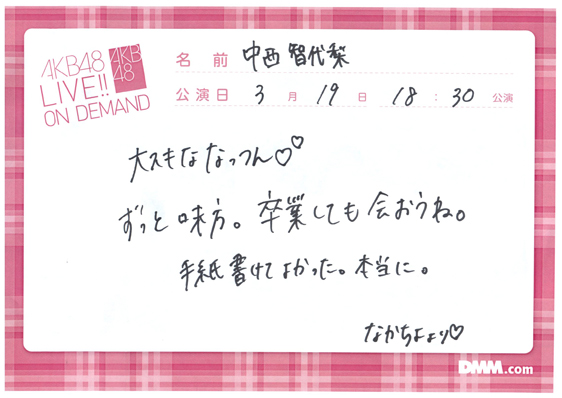 AKB48
LIVE!!
ON DEMAND
AKB
48
名前 中西智代梨
公演日 3月19日 18:30公演
大スキななっつん♡♡
ずっと味方。卒業しても会おうね。
手紙書けてよかった。本当に。
なかちよより♡
DMM.com